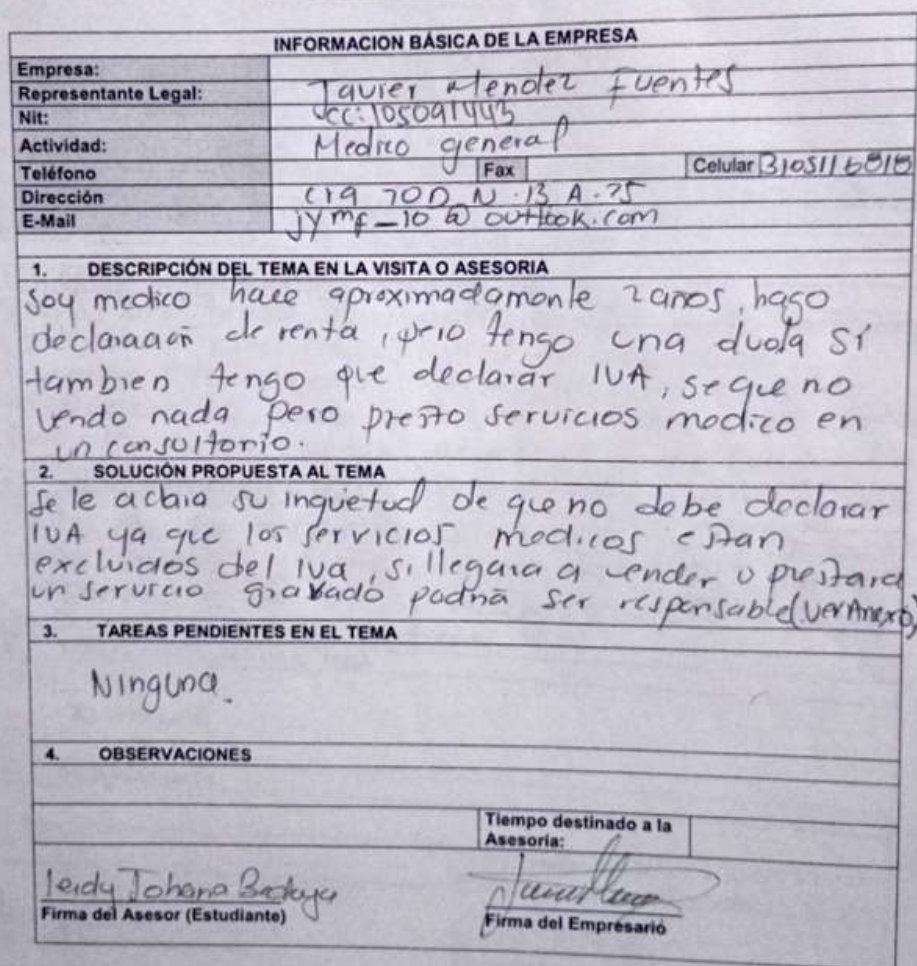 INFORMACION BÁSICA DE LA EMPRESA
Empresa:
Representante Legal: Javier Mendez Fuentes
Nit: CC: 105091443
Actividad: Medico general
Teléfono Fax Celular 310511
Dirección 70D N. 13 A. 75
E-Mail jymf_10@outlook.com
1. DESCRIPCIÓN DEL TEMA EN LA VISITA O ASESORIA
Soy medico hace aproximadamente 2 anos, hago
declaración de renta, pero tengo una duda Sí
tambien tengo que declarar IVA, se que no
vendo nada pero presto servicios medico en
un consultorio.
2. SOLUCIÓN PROPUESTA AL TEMA
Se le su inquietud de que no debe declarar
IVA ya que los servicios medicos estan
excluidos del Iva, si llegara a vender o prestara
un servicio gravado podria ser responsable (ver Anexo)
3. TAREAS PENDIENTES EN EL TEMA
Ninguna.
4. OBSERVACIONES
Tiempo destinado a la
Asesoria:
Leidy Johana
Firma del Asesor (Estudiante)
Firma del Empresarió